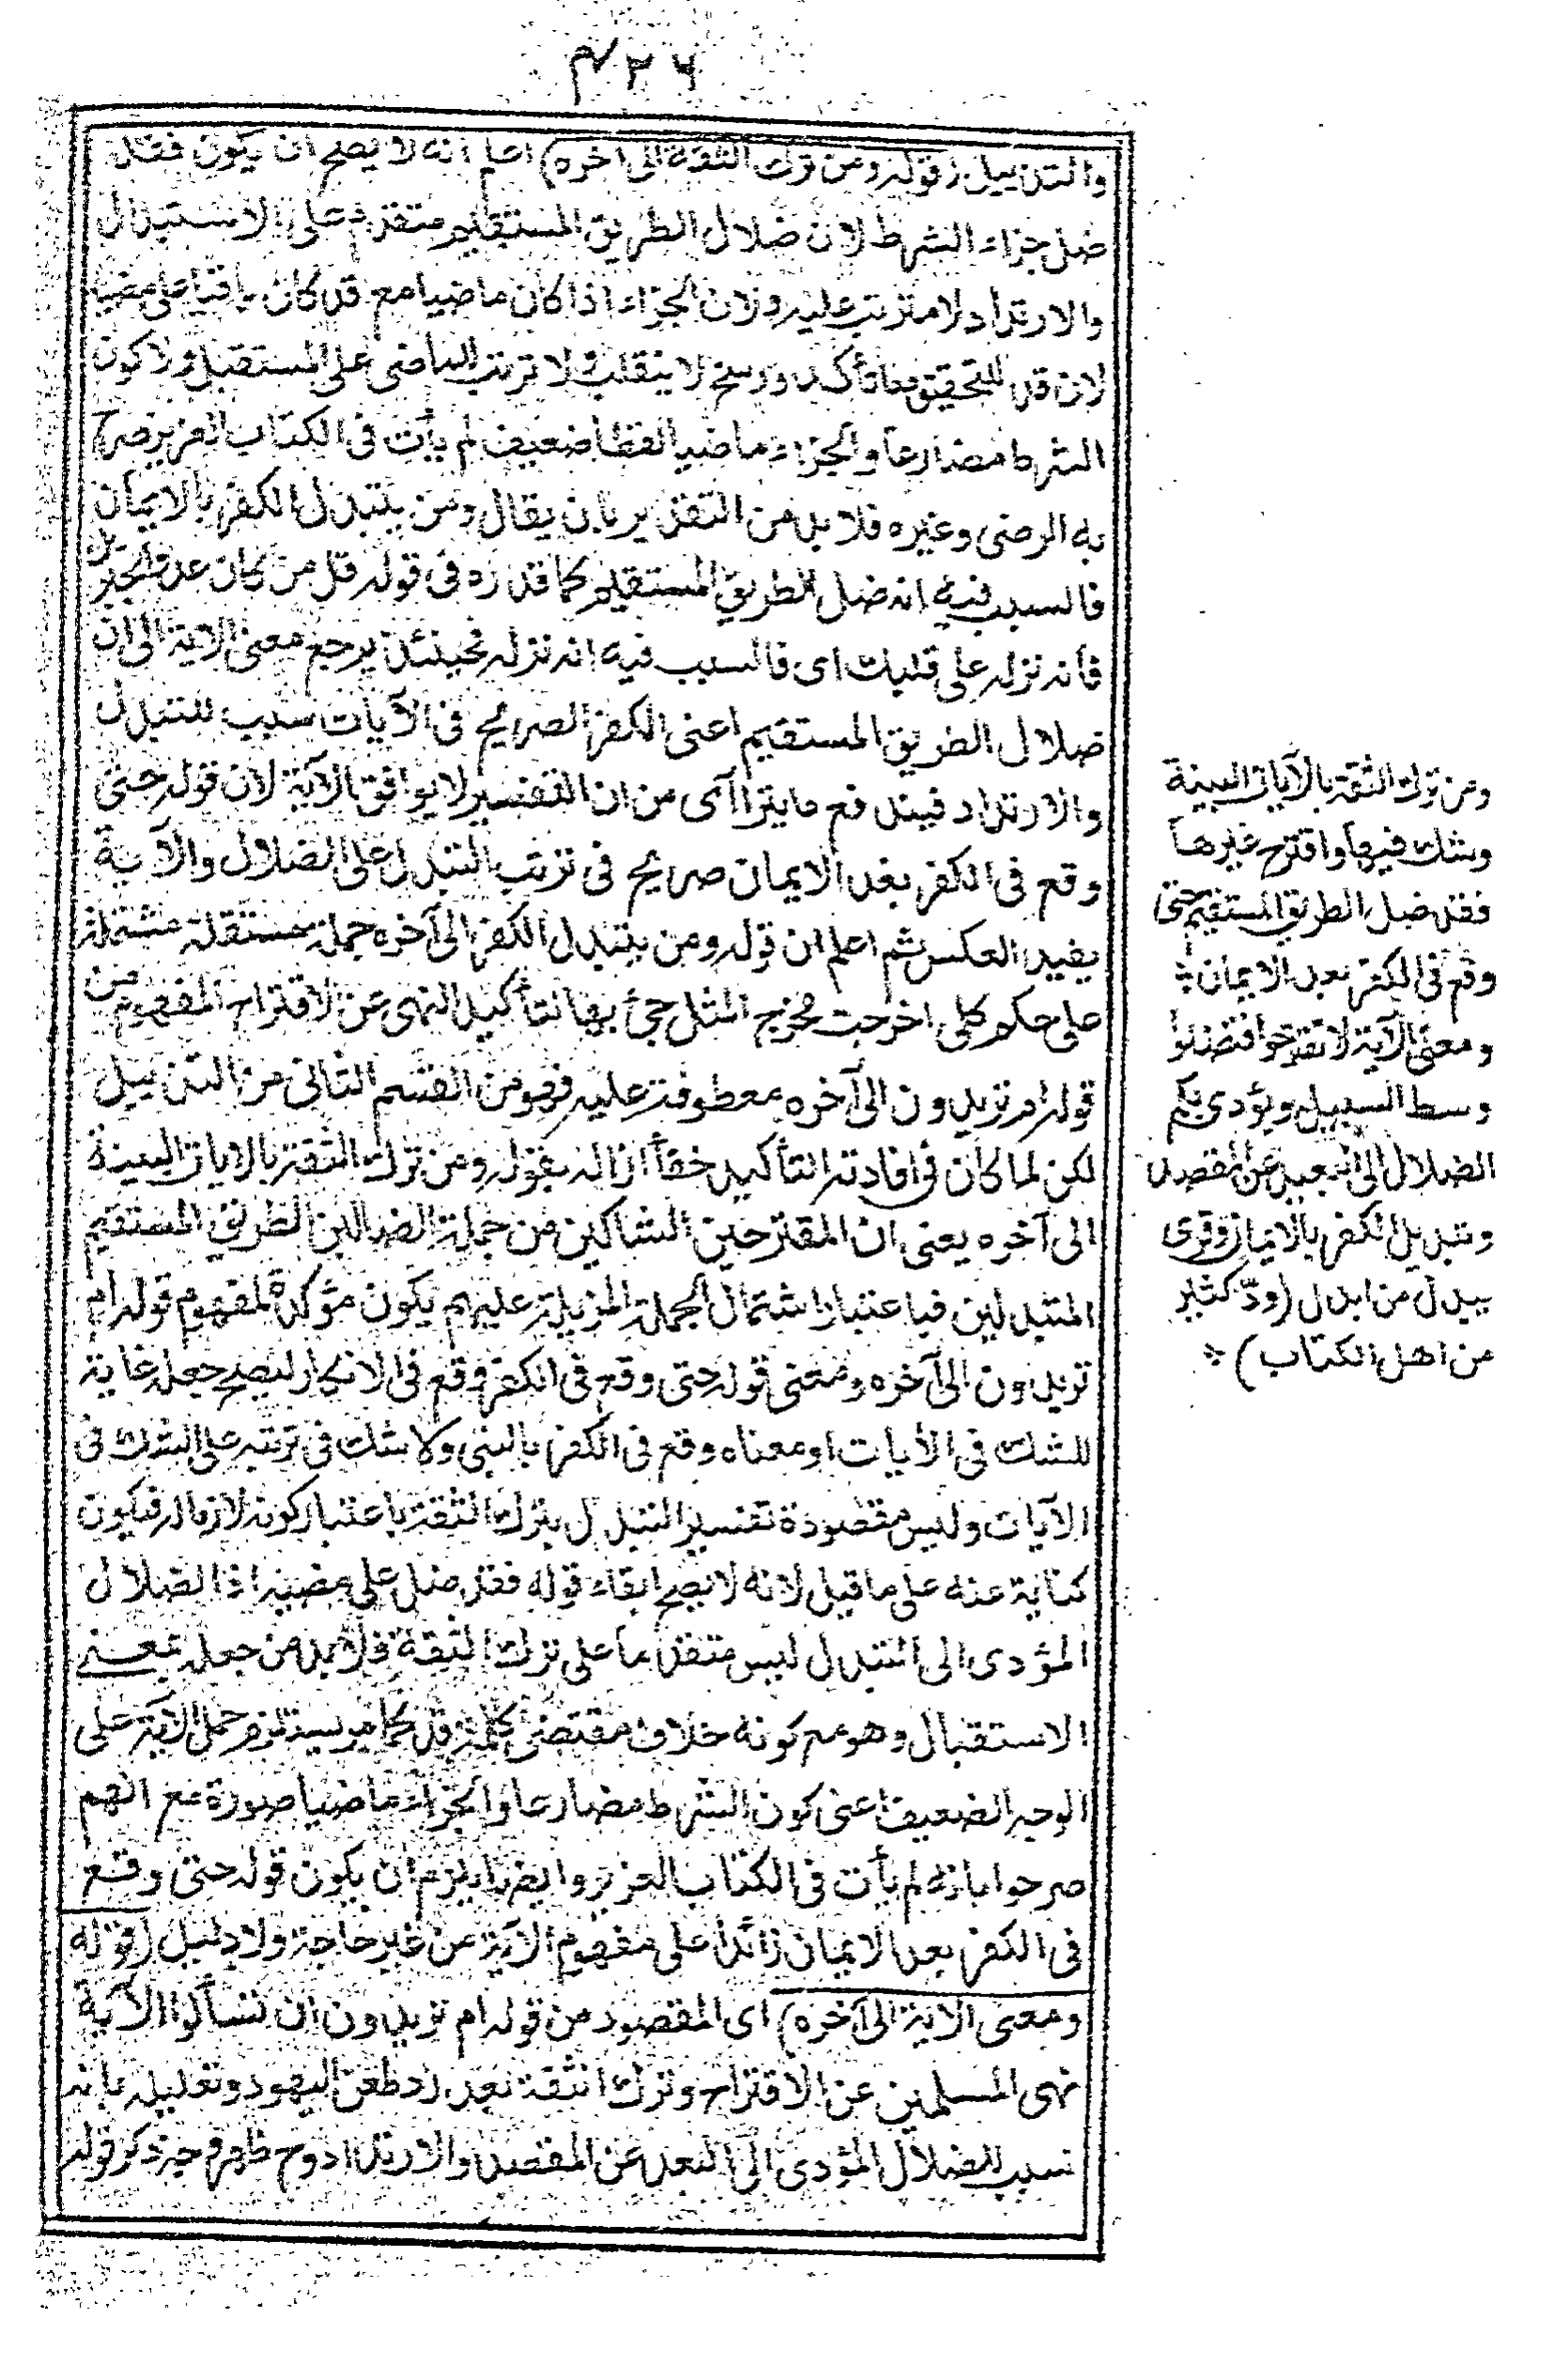 ٤٢٦
والتذييل (قوله ومن ترك الثقة الى اخره) اعلم انه لا يصح ان يكون فقد
ضل جزاء الشرط لان ضلال الطريق المستقيم متقدم على الاستبدال
والارتداد لا مترتب عليه ولان الجزاء اذا كان ماضيا مع قد كان باقيا على مضيه
لان قد للتحقيق وما تأكد ورسخ لا ينقلب ولا ترتب الماضى على المستقبل ولا كون
الشرط مضارعا والجزاء ماضيا لفظا ضعيف لم يأت فى الكتاب العزيز صرح
به الرضى وغيره فلا بد من التقدير بان يقال ومن يتبدل الكفر بالايمان
فالسبب فيه انه ضل الطريق المستقيم كما قدره فى قوله قل من كان عدوا لجبريل
فانه نزله على قلبك اى فالسبب فيه انه نزله فحينئذ يرجع معنى الاية الى ان
ضلال الطريق المستقيم اعنى الكفر الصريح فى الآيات سبب للتبدل
والارتداد فيندفع ما يتراآى من ان التفسير لا يوافق الآية لان قوله حتى
وقع فى الكفر بعد الايمان صريح فى ترتب التبدل على الضلال والآية
يفيد العكس ثم اعلم ان قوله ومن يتبدل الكفر الى آخره جملة مستقلة مشتملة
على حكم كلى اخرجت مخرج المثل جئ بها لتأكيد النهى عن الاقتراح المفهوم من
قوله ام تريدون الى آخره معطوفة عليه فهو من القسم الثانى من التذييل
لكن لما كان فى افادته التأكيد خفأ ازاله بقوله ومن ترك الثقة بالايات البينة
الى آخره يعنى ان المقترحين الشاكين من جملة الضالين الطريق المستقيم
المتبدلين فباعتبار اشتمال الجملة المزيلة عليهم يكون مؤكدة لمفهوم قوله ام
تريدون الى آخره ومعنى قوله حتى وقع فى الكفر وقع فى الانكار ليصح جعله غاية
للشك فى الأيات او معناه وقع فى الكفر بالنبى ولا شك فى ترتبه على الشك فى
الآيات وليس مقصوده تفسير التبدل بترك الثقة باعتبار كونه لازما له فيكون
كناية عنه على ما قيل لانه لا يصح ابقاء قوله فقد ضل على مضيه اذ الضلال
المؤدى الى التبدل ليس متقدما على ترك الثقة فلا بد من جعله بمعنى
الاستقبال وهو مع كونه خلاف مقتضى كلمة قد كما مر يستلزم حمل الاية على
الوجه الضعيف اعنى كون الشرط مضارعا والجزاء ماضيا صورة مع انهم
صرحوا بانه لم يأت فى الكتاب العزيز وايضا يلزم ان يكون قوله حتى وقع
فى الكفر بعد الايمان زائدا على مفهوم الآية من غير حاجة ولا دليل (قوله
ومعنى الاية الى آخره) اى المقصود من قوله ام تريدون ان تسألوا الآية
نهى المسلمين عن الاقتراح وترك الثقة بعد رد طعن اليهود وتعليله بانه
سبب للضلال المؤدى الى البعد عن المقصد والارتداد وح ظهر وجه ذكر قوله
ومن ترك الثقة بالآيات البينة
وشك فيها واقترح غيرها
فقد ضل الطريق المستقيم حتى
وقع فى الكفر بعد الايمان *
ومعنى الآية لا تقترحوا فتضلوا
وسط السبيل ويؤدى بكم
الضلال الى البعد عن المقصد
وتبديل الكفر بالايمان وقرى
يبدل من ابدل (ودّ كثير
من اهل الكتاب) *